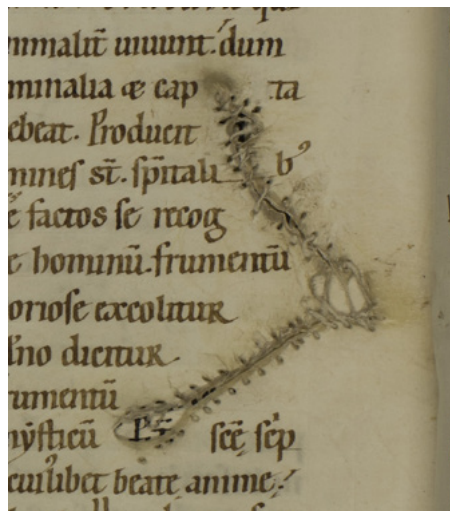 nimaliť uiuunt. dum
minalia æ cap ta
ebeat. Producit
mines st̄. sp̄itali b⁹
ē factos se recog
e hominū. frumentū
oriose excolitur
dicitur
rumentū
ẏsticū scē scp̄
cuilibet beate anime.